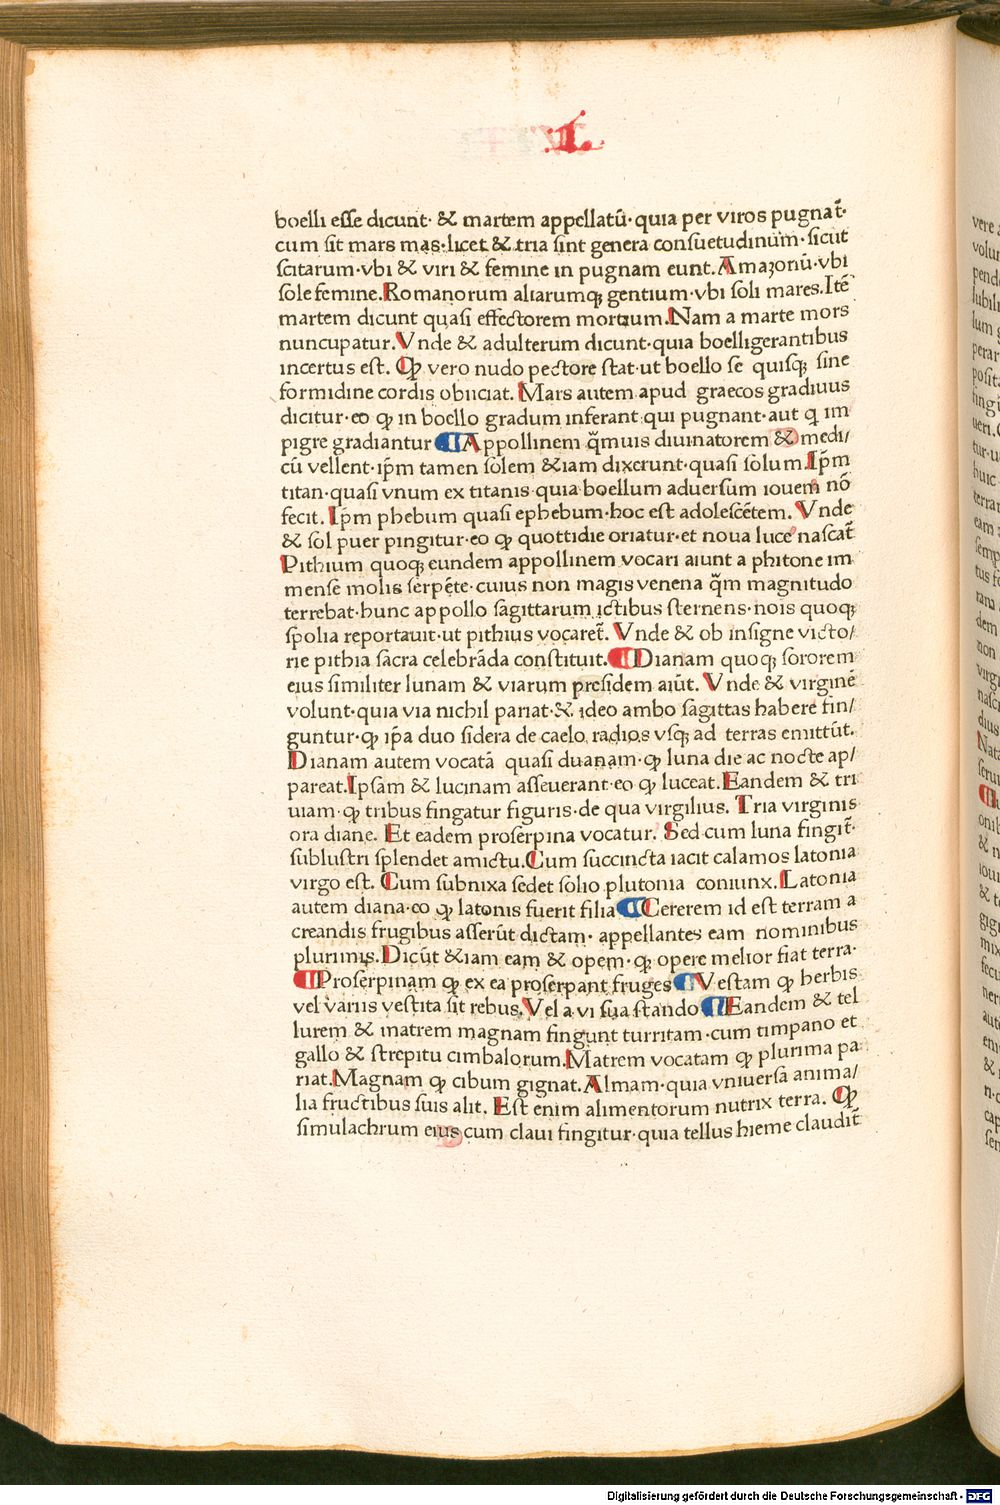 L
boelli esse dicunt· & martem appellatū· quia per viros pugnat̄·
cum sit mars mas·licet & tria sint genera consuetudinum· sicut
scitarum·vbi & viri & femine in pugnam eunt. Amazonū·vbi
sole femine.Romanorum aliarumqꝫ gentium·vbi soli mares.Itē
martem dicunt quasi effectorem mortium.Nam a marte mors
nuncupatur.Vnde & adulterum dicunt·quia boelligerantibus
incertus est. Qꝫ vero nudo pectore stat·ut boello se quisqꝫ sine
formidine cordis obiiciat. Mars autem apud graecos gradiuus
dicitur·eo qꝫ in boello gradum inferant qui pugnant·aut q im
pigre gradiantur ¶Appollinem q̄muis diuinatorem & medi/
cū vellent·ip̄m tamen solem &iam dixerunt·quasi solum.Ip̄m
titan·quasi vnum ex titanis·quia boellum aduersum iouem nō
fecit. Ip̄m phebum quasi ephebum·hoc est adolescētem. Vnde
& sol puer pingitur·eo qꝫ quottidie oriatur·et noua luce nascat̄
Pithium quoqꝫ eundem appollinem vocari aiunt a phitone im
mense molis serpēte·cuius non magis venena q̄m magnitudo
terrebat·hunc appollo sagittarum ictibus sternens·nois quoqꝫ
spolia reportauit·ut pithius vocaret̄. Vnde & ob insigne victo/
rie pithia sacra celebrāda constituit. ¶Dianam quoqꝫ sororem
eius similiter lunam & viarum presidem aiūt. Vnde & virginē
volunt·quia via nichil pariat·& ideo ambo sagittas habere fin/
guntur·qꝫ ip̄a duo sidera de caelo radios vsqꝫ ad terras emittūt.
Dianam autem vocatā quasi duanam·qꝫ luna die ac nocte ap/
pareat.Ipsam & lucinam asseuerant·eo qꝫ luceat.Eandem & tri
uiam·qꝫ tribus fingatur figuris·de qua virgilius. Tria virginis
ora diane. Et eadem proserpina vocatur. Sed cum luna fingit̄·
sublustri splendet amictu.Cum succincta iacit calamos latonia
virgo est. Cum subnixa sedet solio plutonia coniunx.Latonia
autem diana·eo qꝫ latonis fuerit filia ¶Cererem id est terram a
creandis frugibus asserūt dictam· appellantes eam nominibus
plurimis.Dicūt &iam eam & opem·qꝫ opere melior fiat terra·
¶Proserpinam qꝫ ex ea proserpant fruges ¶Vestam qꝫ herbis
vel variis vestita sit rebus.Vel a vi sua stando ¶Eandem & tel
lurem & matrem magnam fingunt turritam·cum timpano et
gallo & strepitu cimbalorum.Matrem vocatam qꝫ plurima pa
riat.Magnam qꝫ cibum gignat.Almam·quia vniuersa anima/
lia fructibus suis alit. Est enim alimentorum nutrix terra. Qꝫ
simulachrum eius cum claui fingitur·quia tellus hieme claudit̄
Digitalisierung gefördert durch die Deutsche Forschungsgemeinschaft - DFG